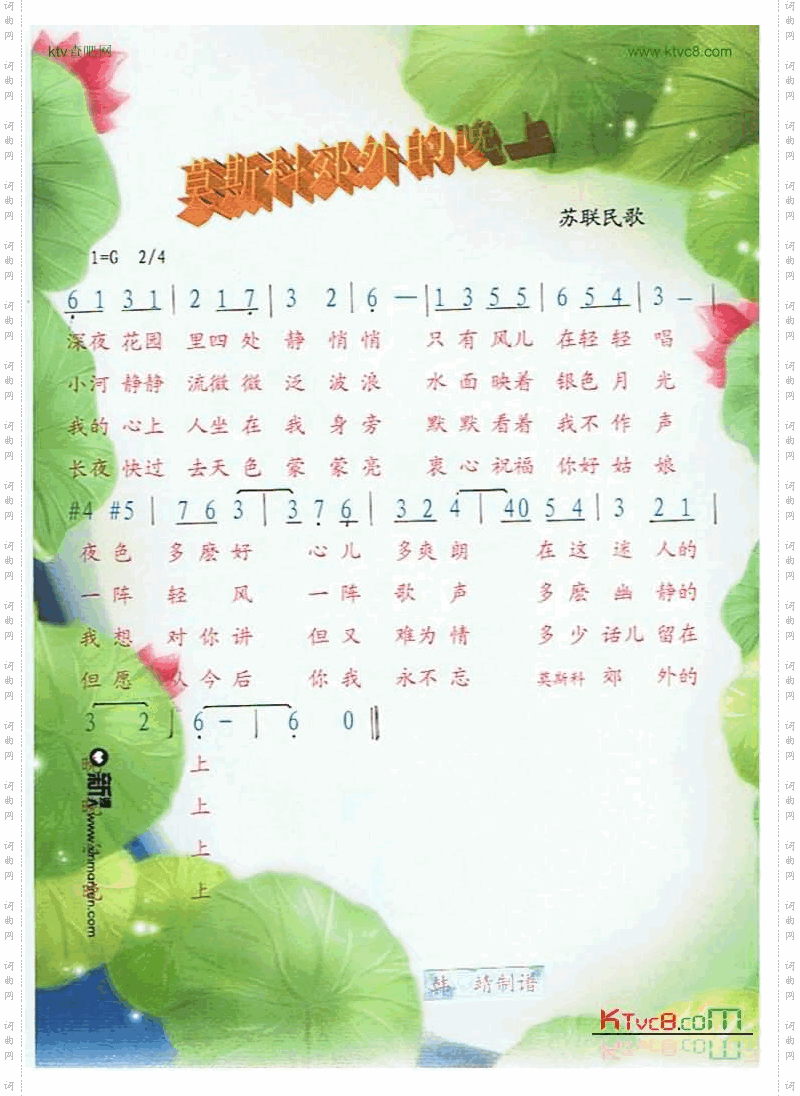 ktv查吧网
www.ktvc8.com
莫斯科郊外的晚上
苏联民歌
1=G 2/4
6 1 3 1 | 2 1 7 | 3 2 | 6 — | 1 3 5 5 | 6 5 4 | 3 — |
深夜 花园 里四 处 静 悄 悄 只 有 风儿 在轻 轻 唱
小河 静静 流微 微 泛 波 浪 水 面 映着 银色 月 光
我的 心上 人坐 在 我 身 旁 默 默 看着 我不 作 声
长夜 快过 去天 色 蒙 蒙 亮 衷 心 祝福 你好 姑 娘
#4 #5 | 7 6 3 | 3 7 6 | 3 2 4 | 40 5 4 | 3 2 1 |
夜 色 多 麽 好 心 儿 多 爽 朗 在 这 迷 人的
一 阵 轻 风 一 阵 歌 声 多 麽 幽 静的
我 想 对 你 讲 但 又 难 为 情 多 少 话儿 留在
但 愿 从 今 后 你 我 永 不 忘 莫斯科 郊 外的
3 2 | 6 — | 6 0 ‖
上
上
上
上
韩 靖制谱
KTvc8.com